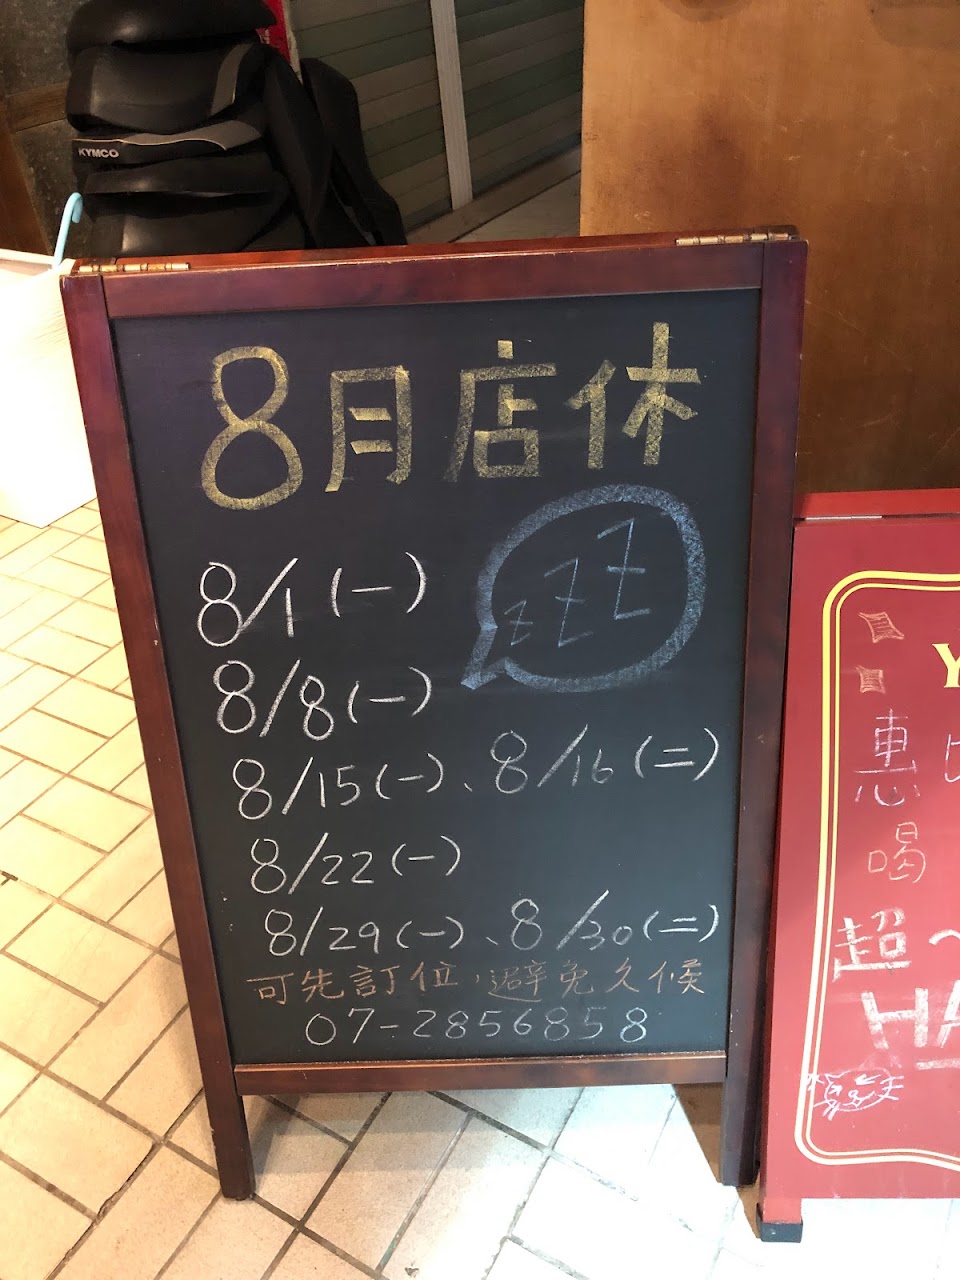 KYMCO
8月店休
zzz
8/1(一)
8/8(一)
8/15(一)、8/16(二)
8/22(一)
8/29(一)、8/30(二)
可先訂位,避免久候
07-2856858
Y
惠
喝
超~
HA